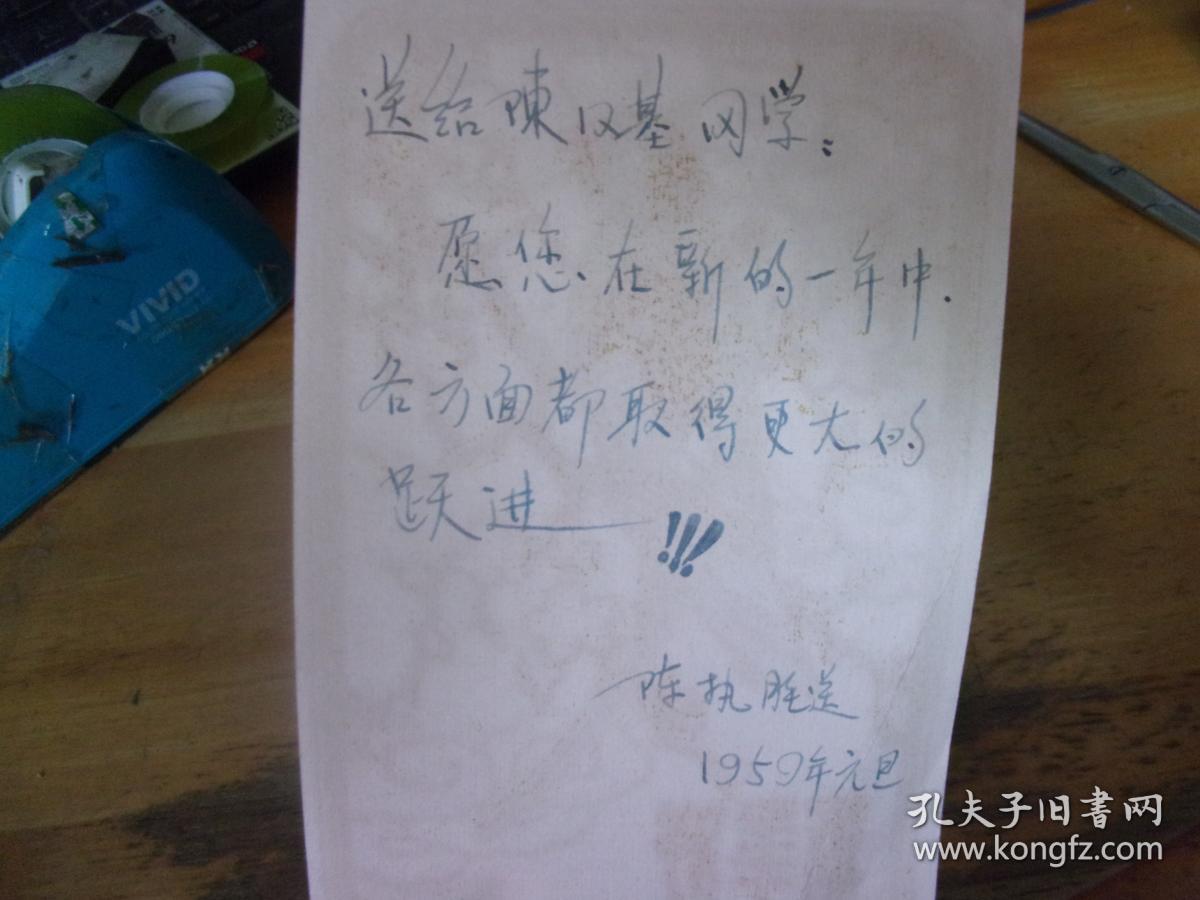 送给陳汉基同学：
愿您在新的一年中.
各方面都取得更大的
跃进——!!!
陈执胜送
1959年元旦
VIVID
孔夫子旧書网
www.kongfz.com